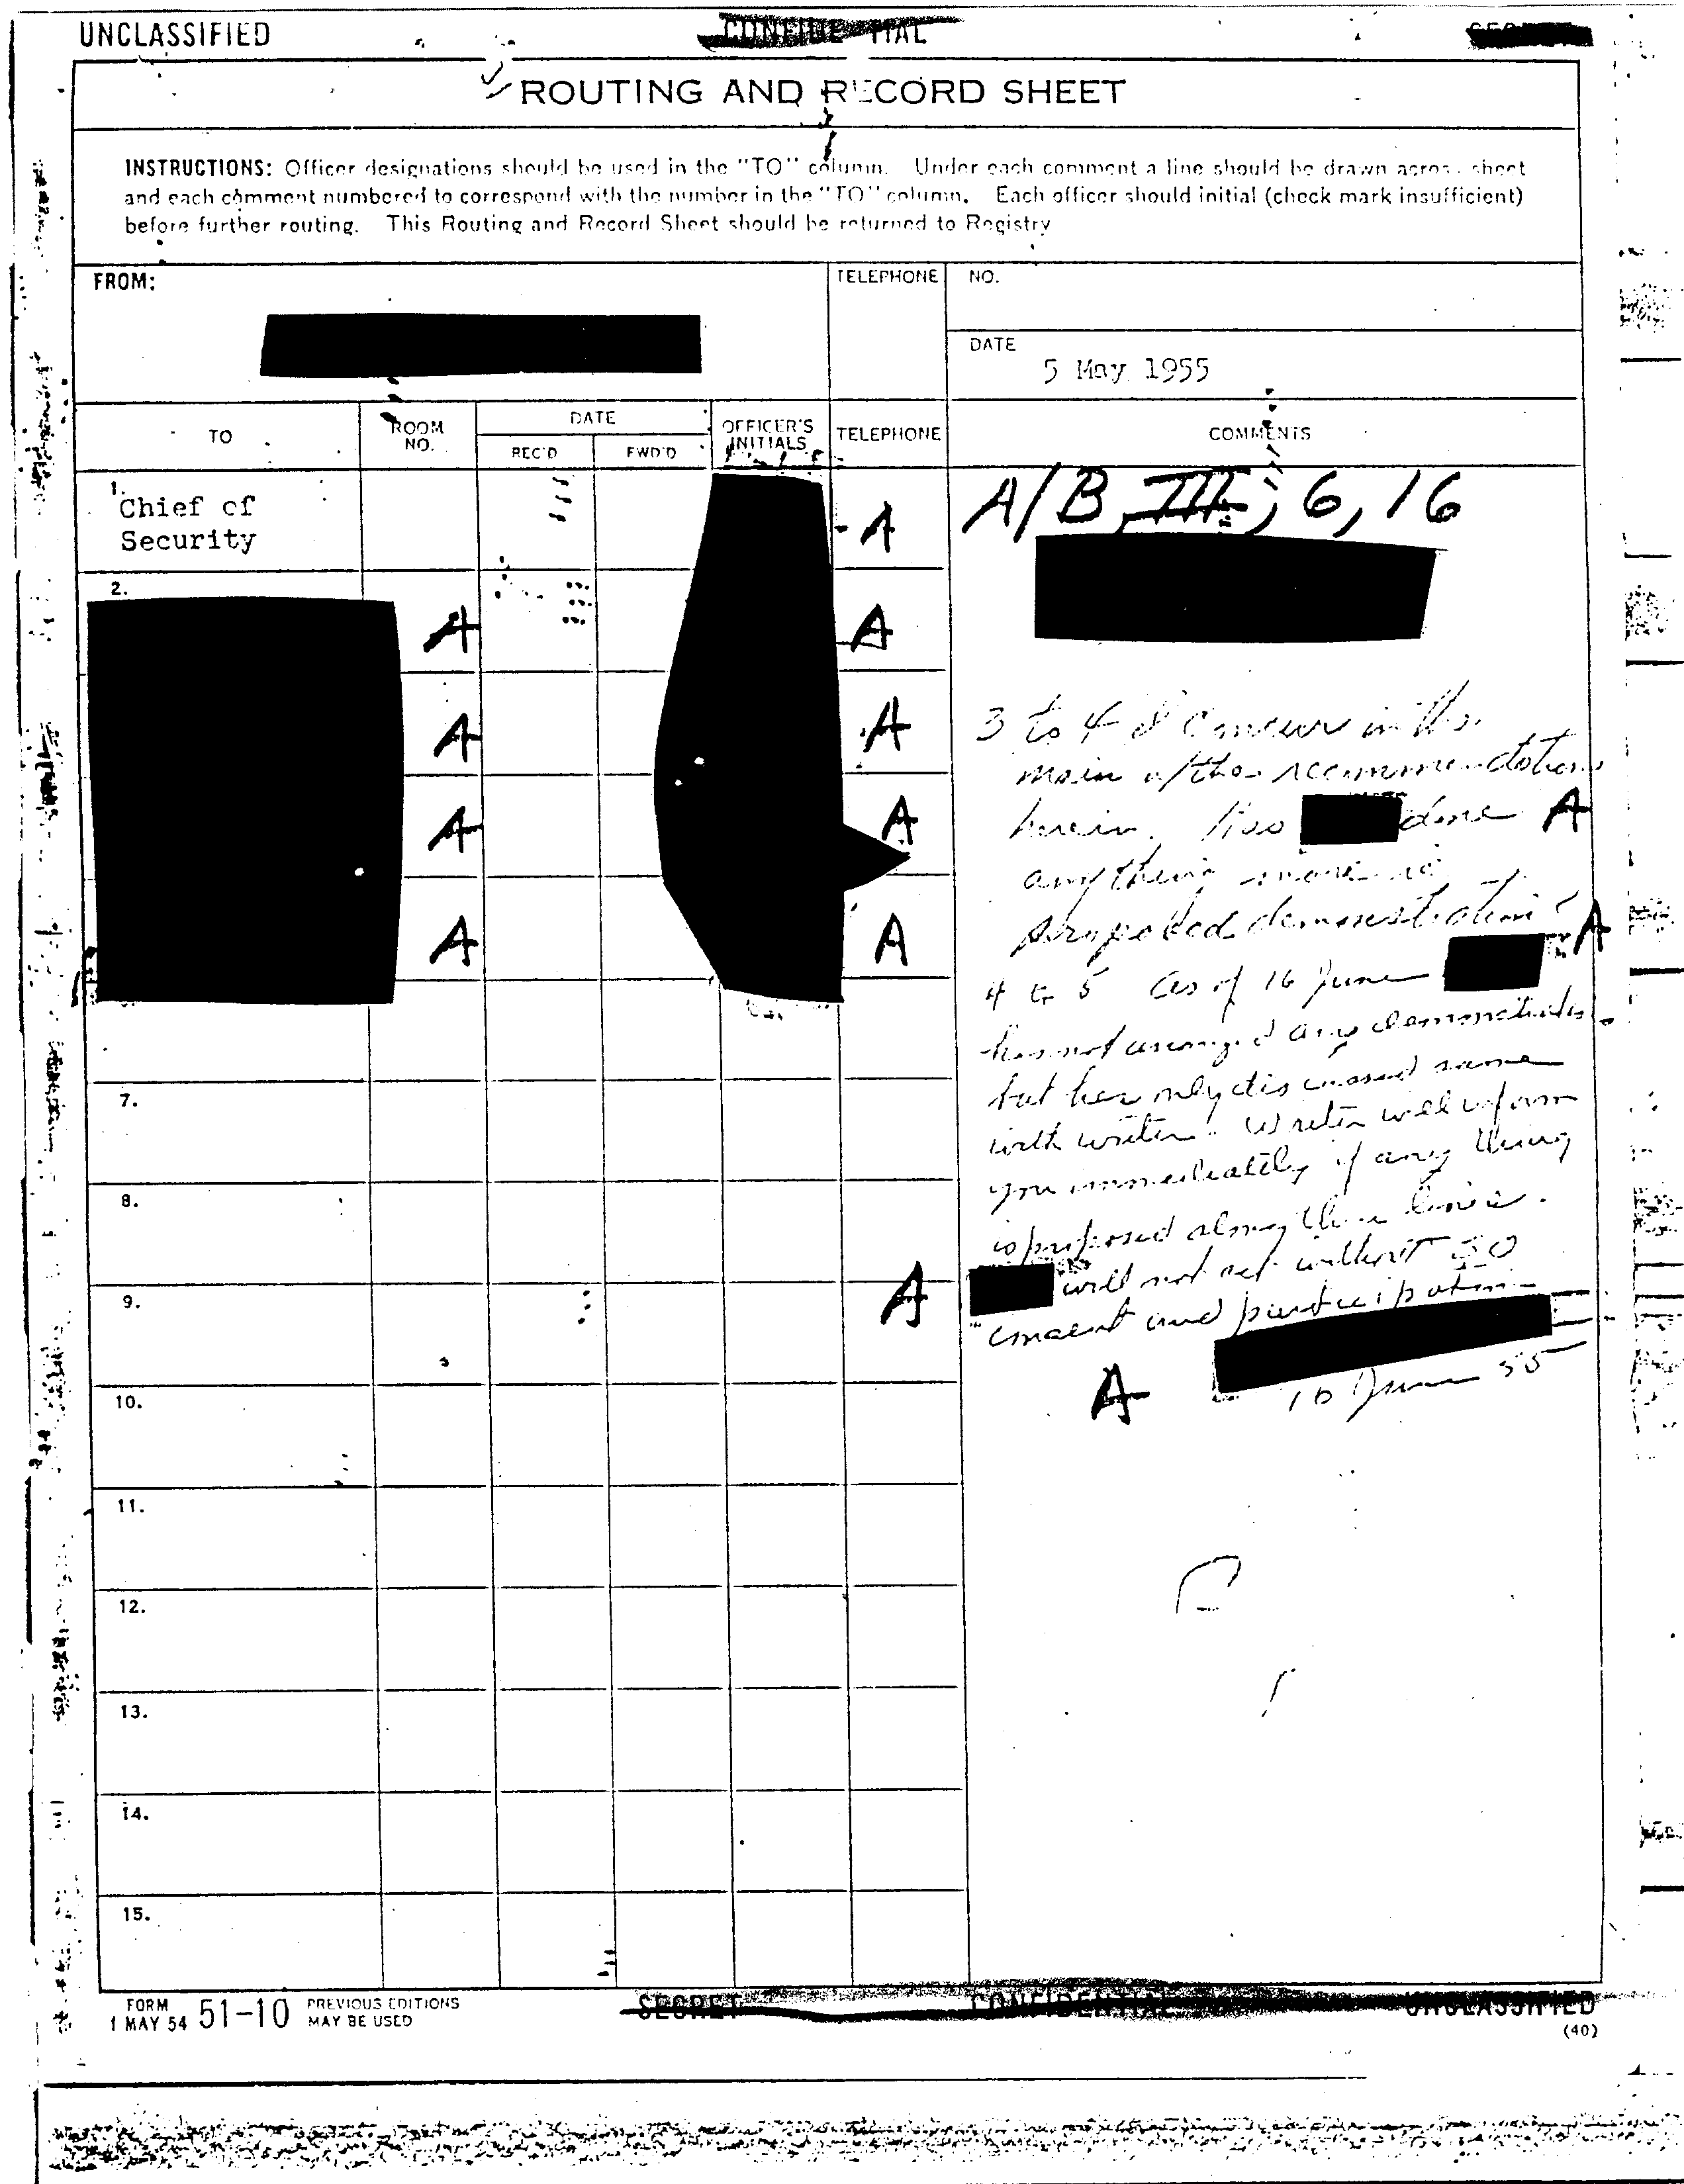 UNCLASSIFIED
ROUTING AND RECORD SHEET
INSTRUCTIONS: Officer designations should be used in the "TO" column. Under each comment a line should be drawn across sheet
and each comment numbered to correspond with the number in the "TO" column. Each officer should initial (check mark insufficient)
before further routing. This Routing and Record Sheet should be returned to Registry
FROM:
TELEPHONE
NO.
DATE
5 May 1955
TO
ROOM
NO.
DATE
REC'D
FWD'D
OFFICER'S
INITIALS
TELEPHONE
COMMENTS
1.
Chief of
Security
A
A/B, III; 6, 16
2.
A
A
A
A
A
A
A
A
3 to 4 I concur in the
main w/the recommendations
herein. Has done A
anything more
proposed demonstration? A
4 to 5 As of 16 June
has not arranged any demonstrations
but has only discussed same
with writer. Writer will inform
you immediately if any thing
is proposed along these lines.
will not act without SO
consent and participation
A
16 June 55
7.
8.
9.
A
10.
11.
12.
13.
14.
15.
FORM
1 MAY 54
51-10
PREVIOUS EDITIONS
MAY BE USED
SECRET
CONFIDENTIAL
UNCLASSIFIED
(40)